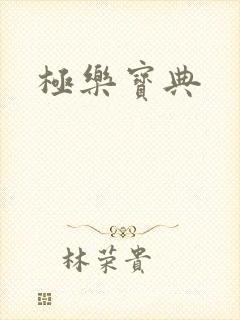 極樂寶典
林荣貴